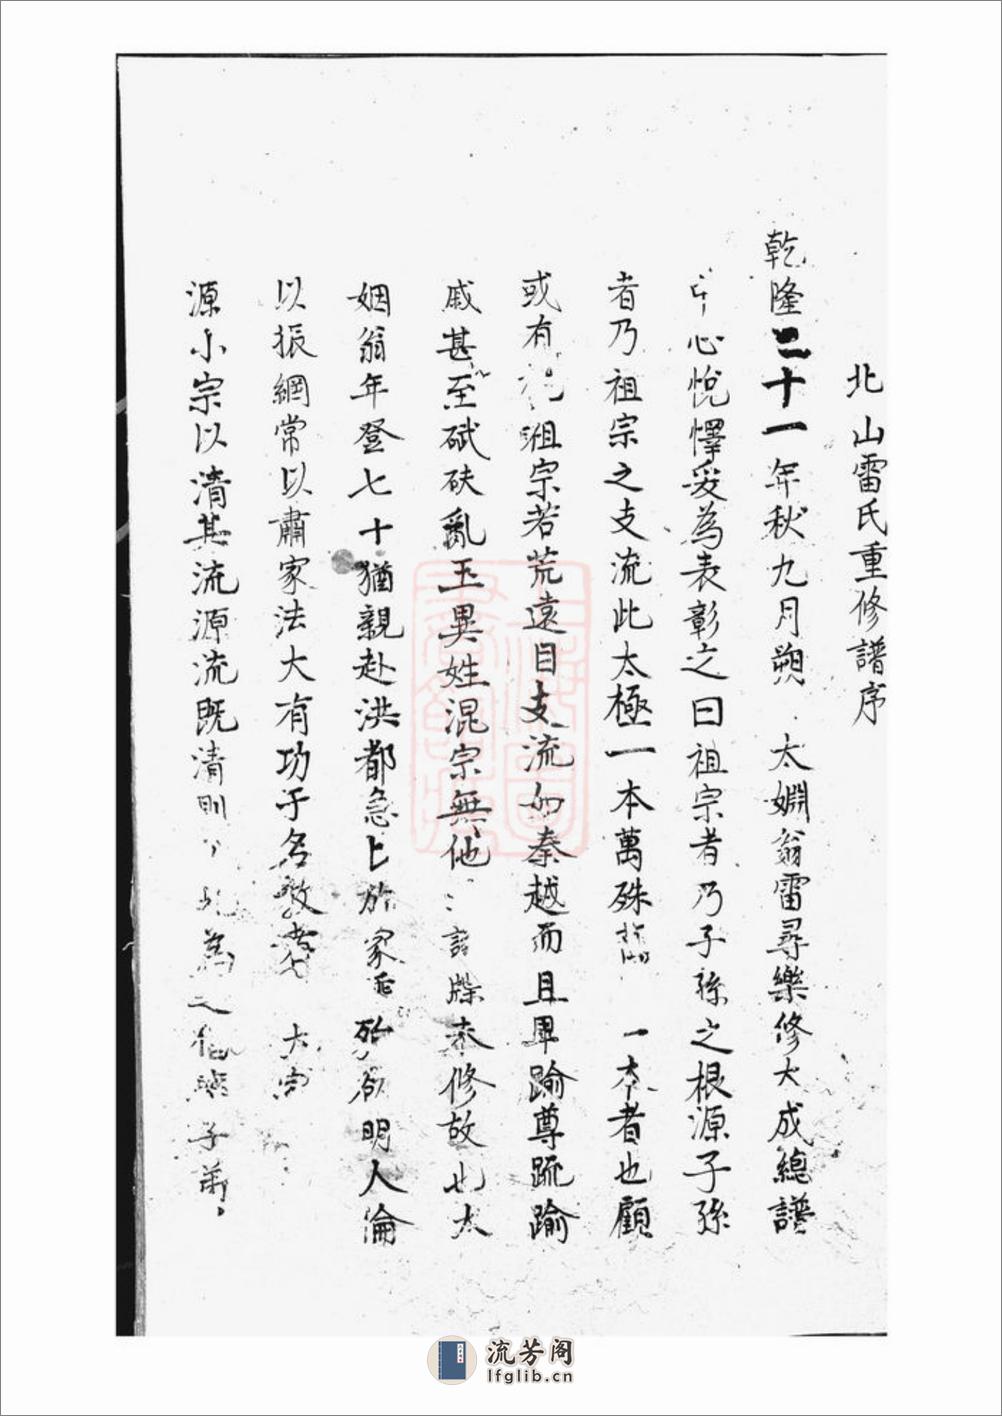 北山雷氏重修譜序
乾隆二十一年秋九月朔太姻翁雷尋樂修大成總譜
心悅懌爰為表彰之曰祖宗者乃子孫之根源子孫
者乃祖宗之支流此太極一本萬殊一本者也顧
或有祖宗若荒遠目支流如秦越而且卑踰尊踈踰
戚甚至碔砆亂玉異姓混宗無他譜牒未修故也太
姻翁年登七十猶親赴洪都急上於家乖殆欲明人倫
以振綱常以肅家法大有功于名教大宗
源小宗以清其流源流既清則為之子弟
上海圖書館藏
流芳阁
lfglib.cn